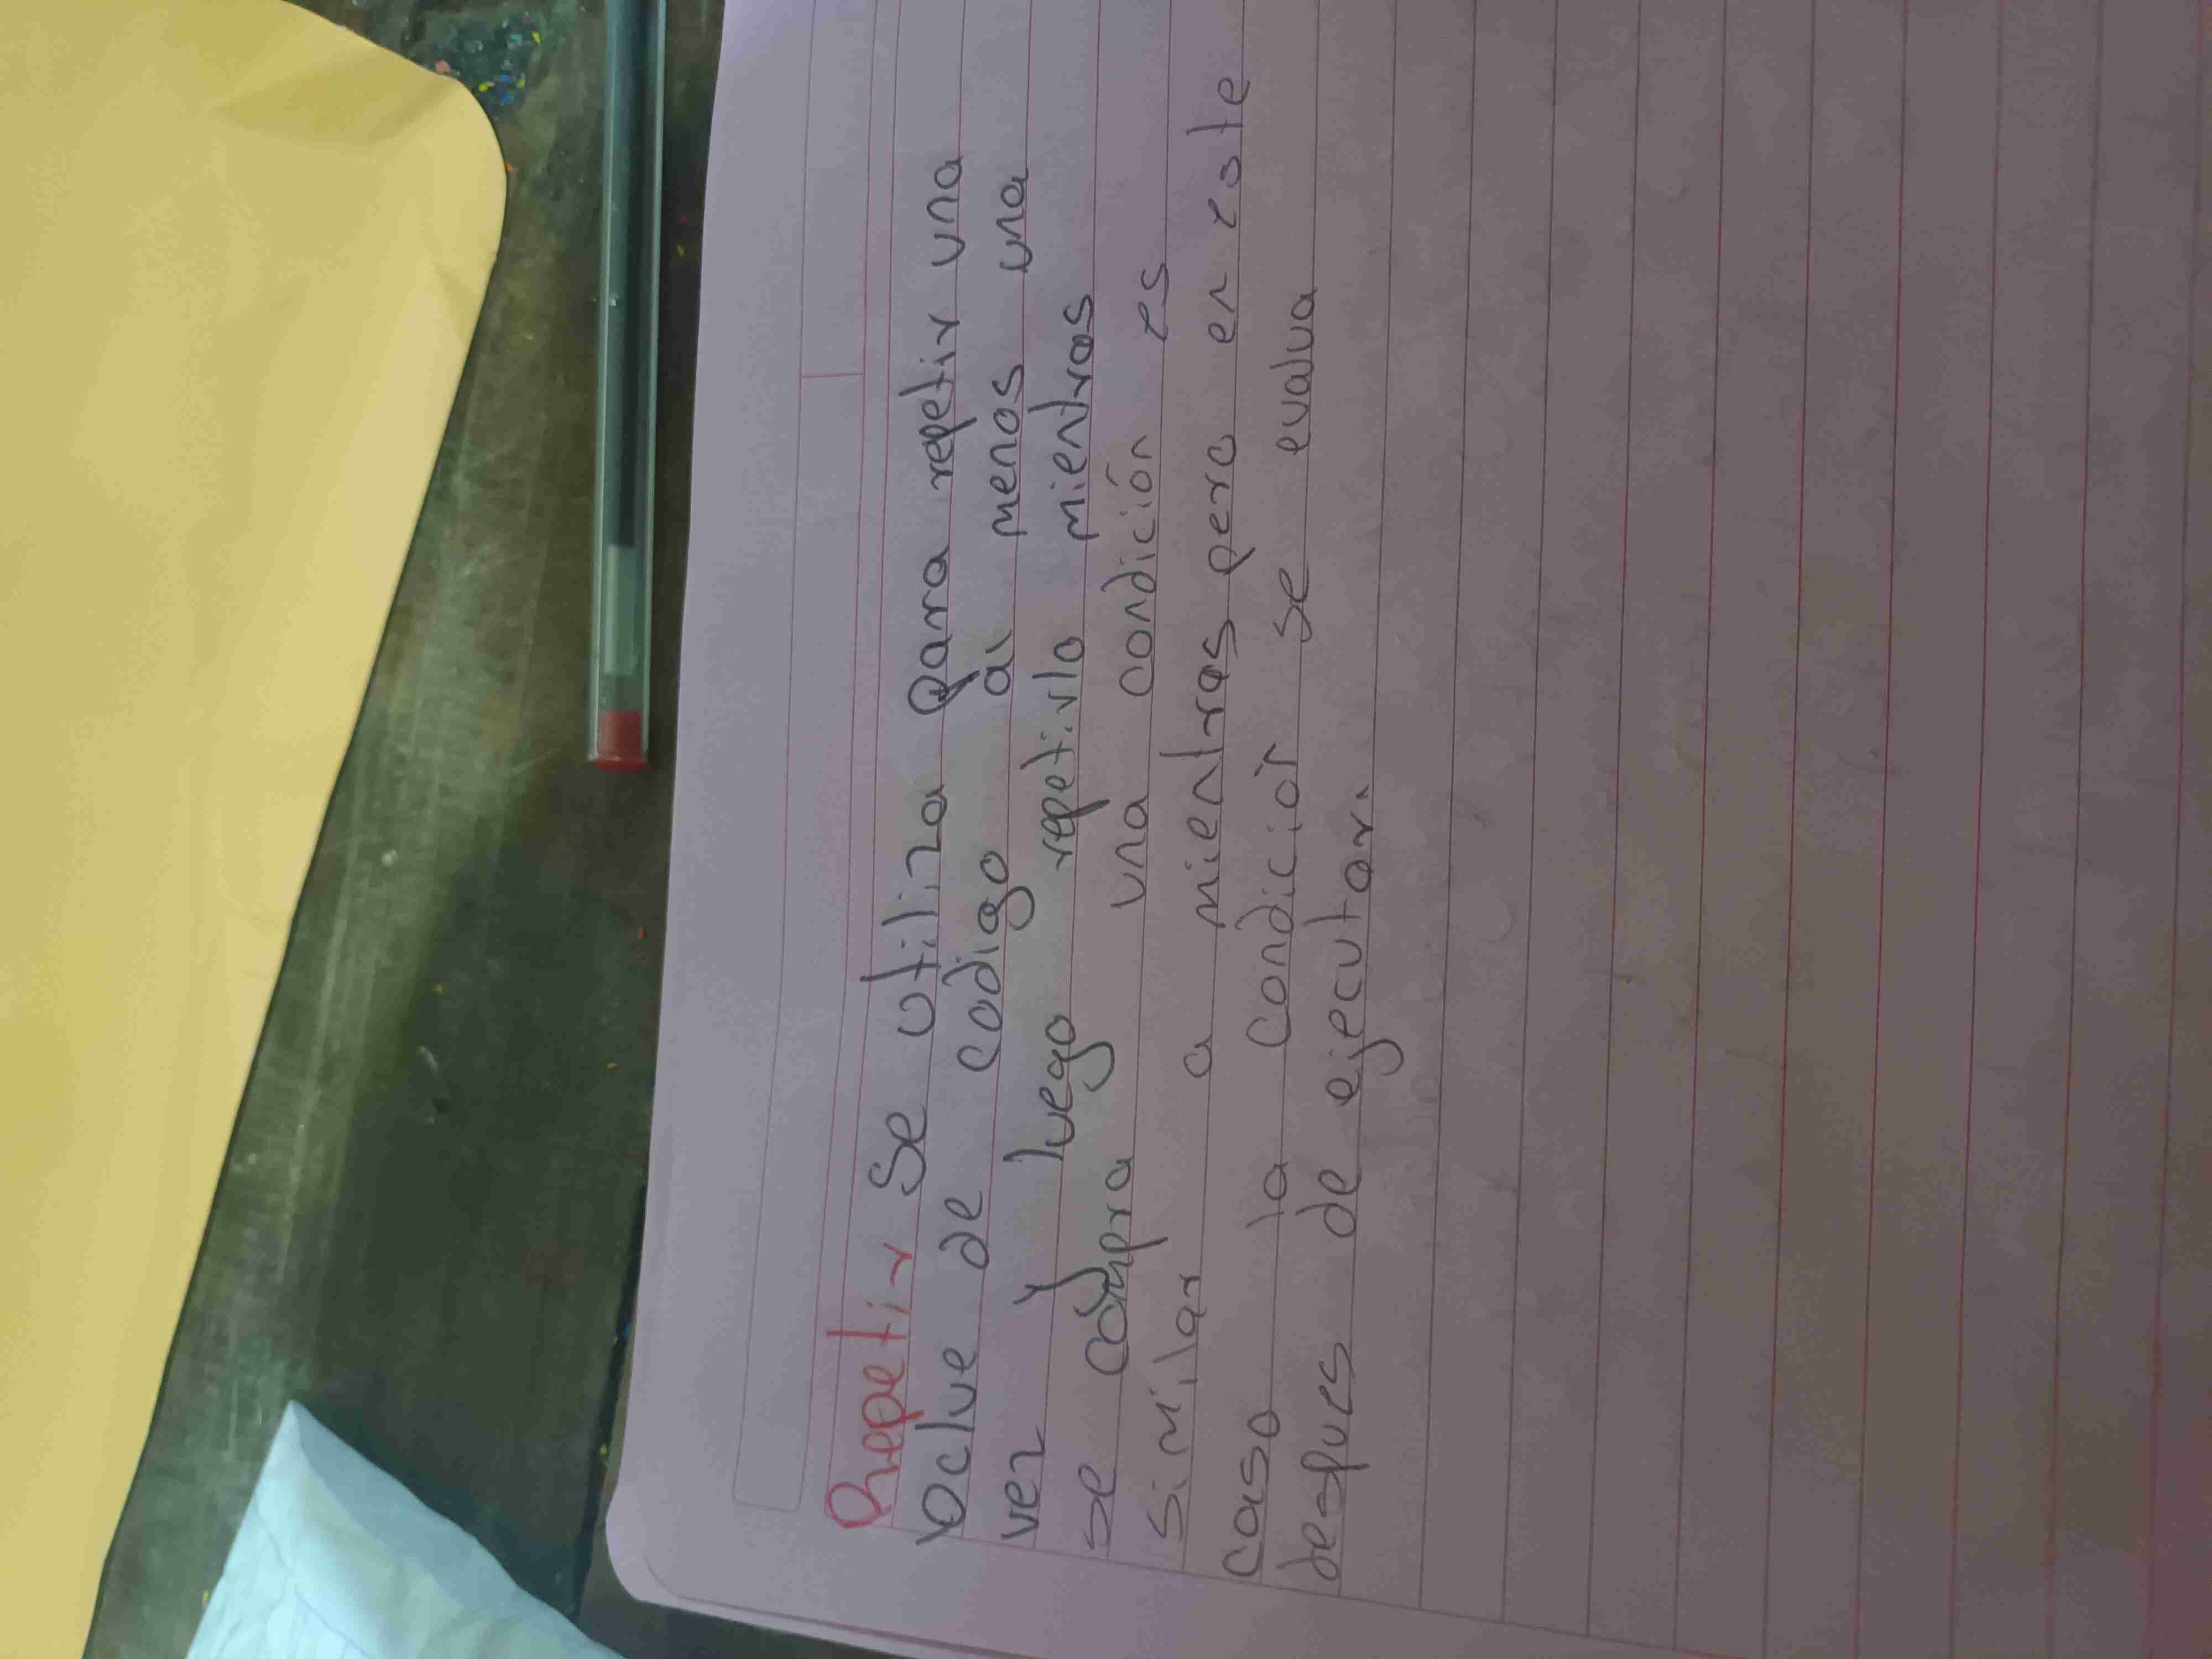 Repetir Se utiliza para repetir una
boclue de codigo al menos una
vez y luego repetirlo mientras
se compra una condición es
similar a mientras pero en este
caso la condición se evalua
despues de ejecutar.